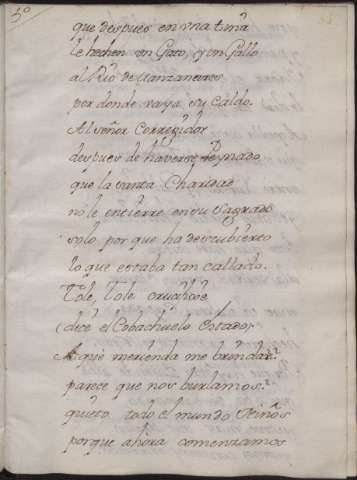 30
que despues en vna tina
le hechen vn Gato, y vn Gallo
al Rio de Manzanares
por donde vaya su caldo.
Al señor Corregidor
despues de haverse Reynado
que la santa Charidad
no le entierre en su Sagrado
solo por que ha descubierto
lo que estaba tan callado.
Tole, Tole
dice el Cobachuelo
A que merienda me brindar
parece que nos burlamos.
quieto todo el mundo
porque ahora comenzamos